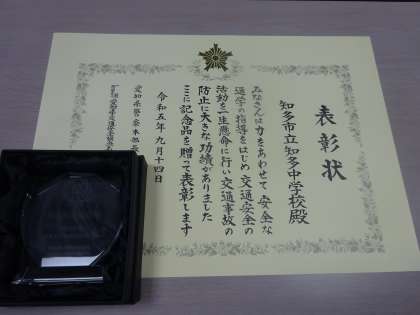 表彰状
知多市立知多中学校殿
みなさんは力をあわせて安全な
通学の指導をはじめ交通安全の
活動を一生懸命に行い交通事故の
防止に大きな功績がありました
ここに記念品を贈って表彰します
令和五年九月十四日
愛知県警察本部